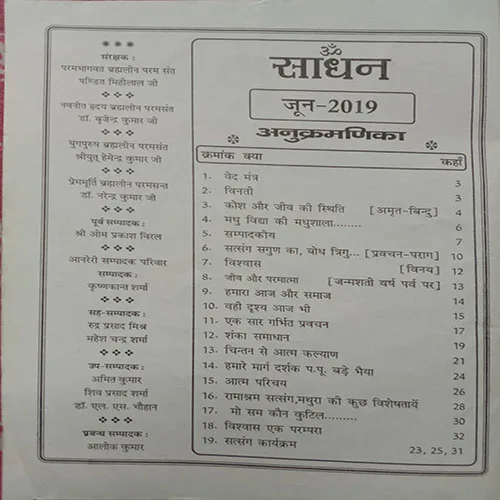 संरक्षक :
परमभागवत ब्रह्मलीन परम संत
पण्डित मिहीलाल जी
नवनीत हृदय ब्रह्मलीन परमसंत
डॉ. बृजेन्द्र कुमार जी
युगपुरुष ब्रह्मलीन परमसंत
श्रीयुत् हेमेन्द्र कुमार जी
प्रेममूर्ति ब्रह्मलीन परमसन्त
डॉ. नरेन्द्र कुमार जी
पूर्व सम्पादक :
श्री ओम प्रकाश विरल
आनरेरी सम्पादक परिवार
सम्पादक :
कृष्णकान्त शर्मा
सह-सम्पादक :
रुद्र प्रसाद मिश्र
महेश चन्द्र शर्मा
उप-सम्पादक :
अमित कुमार
शिव प्रसाद शर्मा
डॉ. एल. एस. चौहान
प्रबन्ध सम्पादक :
आलोक कुमार
ॐ
साधन
जून-2019
अनुक्रमणिका
क्रमांक क्या कहाँ
1. वेद मंत्र 3
2. विनती 3
3. कोश और जीव की स्थिति [अमृत-बिन्दु] 4
4. मधु विद्या की मधुशाला........ 6
5. सम्पादकीय 7
6. सत्संग सगुण का, बोध त्रिगु... [प्रवचन-पराग] 10
7. विश्वास [विनय] 12
8. जीव और परमात्मा [जन्मशती वर्ष पर्व पर] 13
9. हमारा आज और समाज 14
10. वही दृश्य आज भी 15
11. एक सार गर्भित प्रवचन 17
12. शंका समाधान 19
13. चिन्तन से आत्म कल्याण 21
14. हमारे मार्ग दर्शक प.पू. बड़े भैया 24
15. आत्म परिचय 26
16. रामाश्रम सत्संग,मथुरा की कुछ विशेषतायें 28
17. मो सम कौन कुटिल......... 30
18. विश्वास एक परम्परा 32
19. सत्संग कार्यक्रम 23, 25, 31